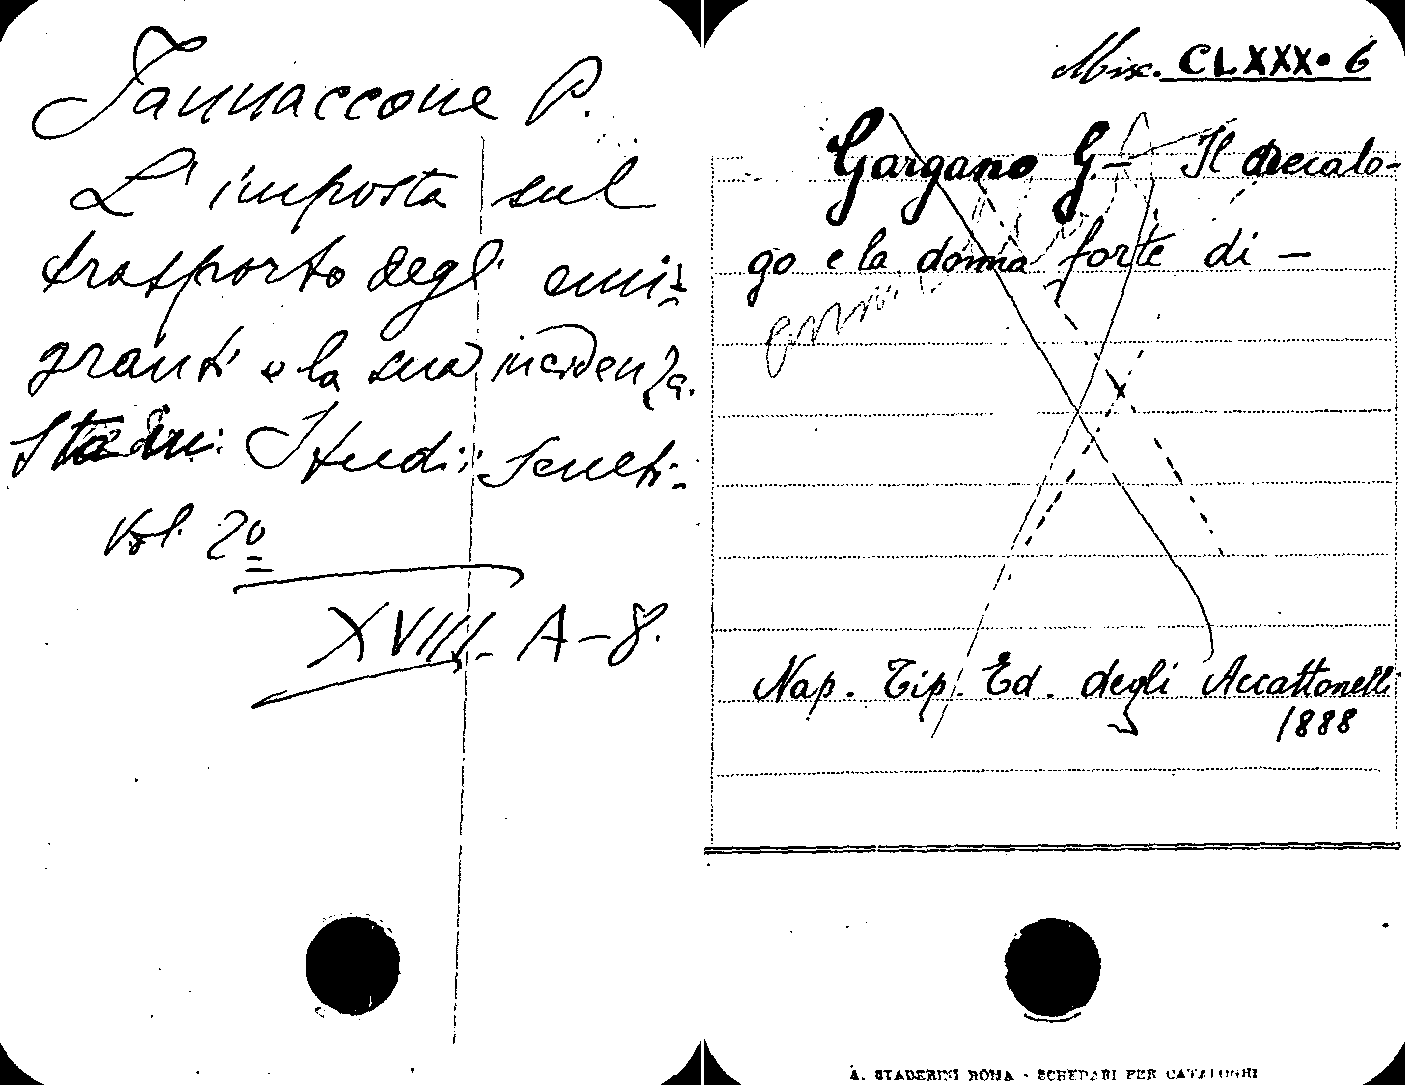 Jannaccone P.
L'imposta sul
trasporto degli emi-
granti e la sua incidenza.
Sta in: Studi: Senesi-
Vol. 2º
XVIII - A - 8.
Mix. CLXXX. 6
Gargano G. - Il decalo-
go e la donna forte di -
Nap. Tip. Ed. degli Accattonelli
1888
A. STADERINI ROMA - SCHEDARI PER CATALOGHI